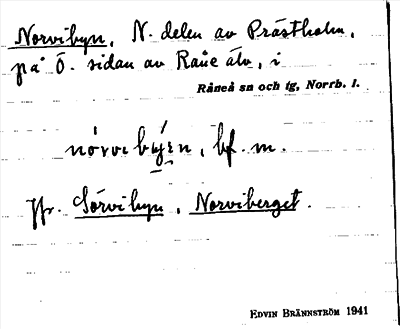 Norvibyn, N. delen av Prästholm,
på Ö. sidan av Råne älv, i
Råneå sn och tg, Norrb. l.
bf. m.
Jfr. Sörvibyn, Norviberget.
EDVIN BRÄNNSTRÖM 1941